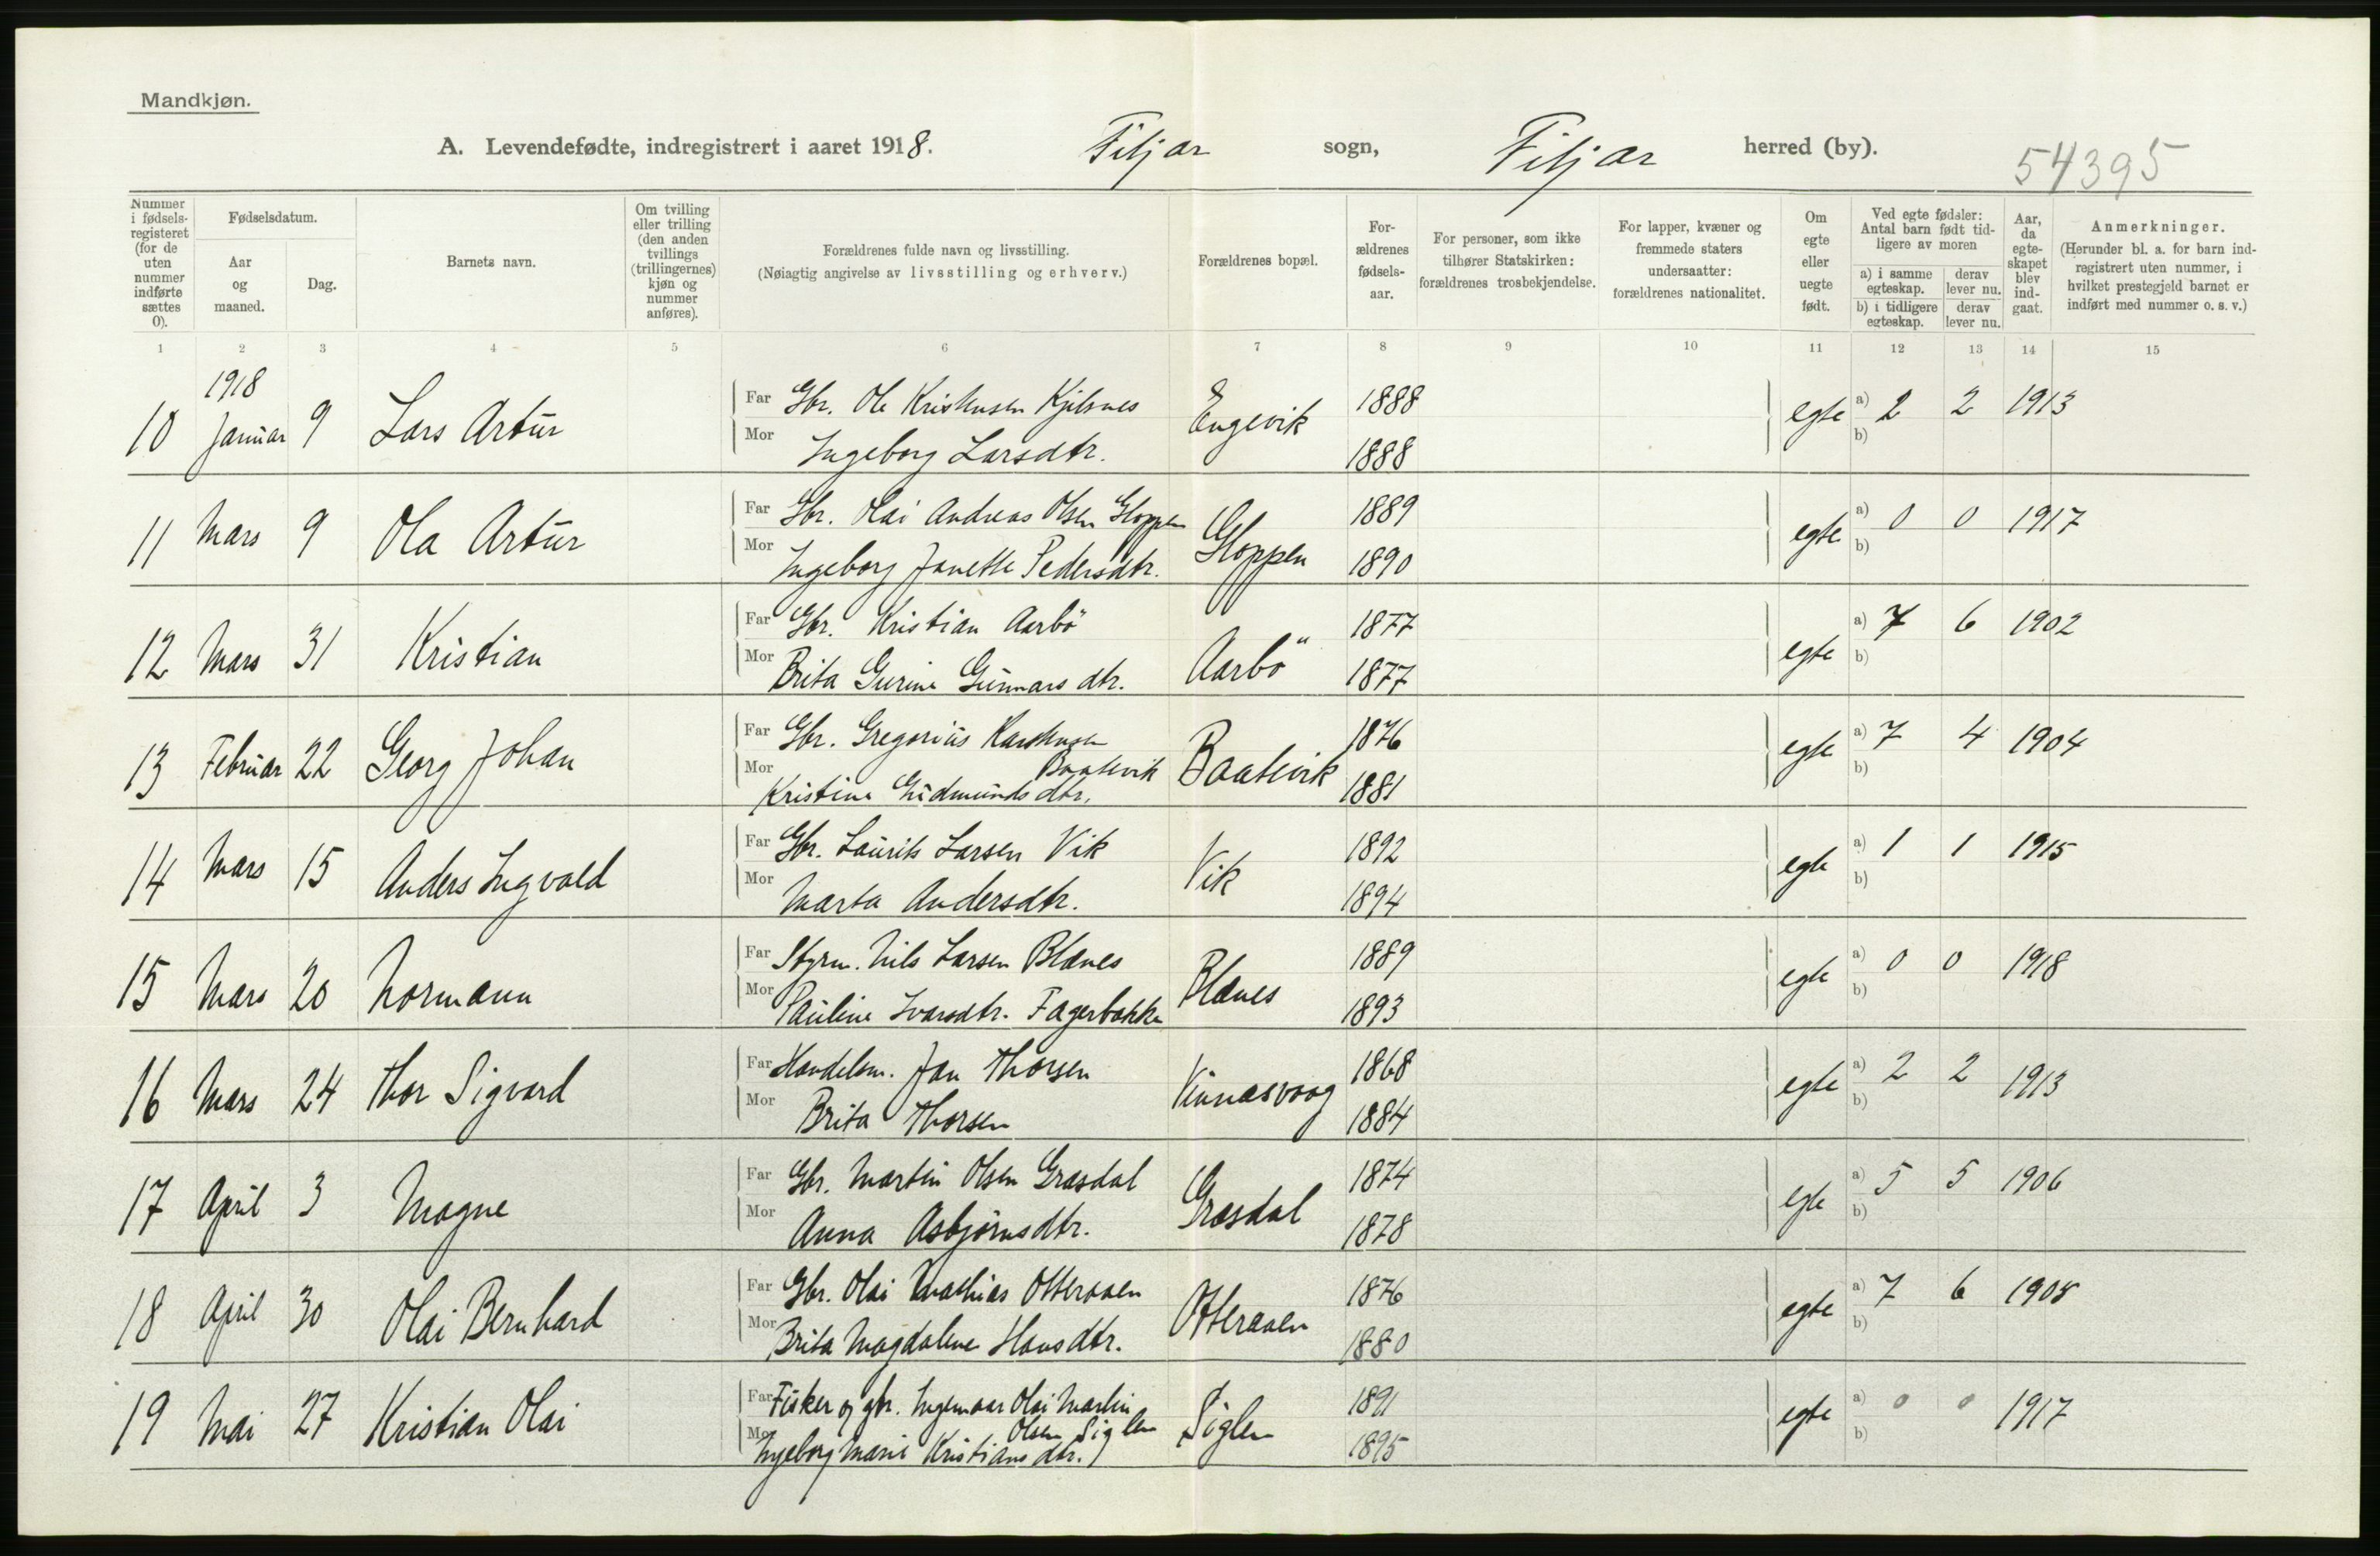 Mandkjøn.
A. Levendefødte, indregistrert i aaret 1918. Fitjar sogn, Fitjar herred (by). 54395
Nummer i fødsels-registeret (for de uten nummer indførte sættes 0).
Fødselsdatum.
Aar og maaned.
Dag.
Barnets navn.
Om tvilling eller trilling (den anden tvillings (trillingernes) kjøn og nummer anføres).
Forældrenes fulde navn og livsstilling.
(Nøiagtig angivelse av livsstilling og erhverv.)
Forældrenes bopæl.
For-ældrenes fødsels-aar.
For personer, som ikke tilhører Statskirken: forældrenes trosbekjendelse.
For lapper, kvæner og fremmede staters undersaatter: forældrenes nationalitet.
Om egte eller uegte født.
Ved egte fødsler: Antal barn født tid-ligere av moren
a) i samme egteskap. derav lever nu.
b) i tidligere egteskap. derav lever nu.
Aar, da egte-skapet blev ind-gaat.
Anmerkninger.
(Herunder bl. a. for barn ind-registrert uten nummer, i hvilket prestegjeld barnet er indført med nummer o. s. v.)
1 2 3 4 5 6 7 8 9 10 11 12 13 14 15
1918
10 Januar 9 Lars Artur Far Gbr. Ole Kristensen Kjilsnes Engevik 1888 egte a) 2 2 1913
Mor Ingeborg Larsdtr. 1888 b)
11 Mars 9 Ola Artur Far Gbr. Olai Andreas Olsen Gloppen Gloppen 1889 egte a) 0 0 1917
Mor Ingeborg Janette Pedersdtr. 1890 b)
12 Mars 31 Kristian Far Gbr. Kristian Aarbö Aarbö 1877 egte a) 7 6 1902
Mor Brita Gurine Gunnars dtr. 1877 b)
13 Februar 22 Georg Johan Far Gbr. Gregorius Karstensen Baatevik Baatevik 1876 egte a) 7 4 1904
Mor Kristine Gudmunds dtr. 1881 b)
14 Mars 15 Anders Ingvald Far Gbr. Laurits Larsen Vik Vik 1892 egte a) 1 1 1915
Mor Marta Andersdtr. 1894 b)
15 Mars 20 Normann Far Styrm. Nils Larsen Blænes Blænes 1889 egte a) 0 0 1918
Mor Pauline Ivarsdtr. Fagerbakke 1893 b)
16 Mars 24 Thor Sigvard Far Handelsm. Jan Thorsen Vinnesvaag 1868 egte a) 2 2 1913
Mor Brita Thorsen 1884 b)
17 April 3 Magne Far Gbr. Martin Olsen Græsdal Græsdal 1874 egte a) 5 5 1906
Mor Anna Asbjörnsdtr. 1878 b)
18 April 30 Olai Bernhard Far Gbr. Olai Mathias Otteraaen Otteraaen 1876 egte a) 7 6 1905
Mor Brita Magdalene Hansdtr. 1880 b)
19 Mai 27 Kristian Olai Far Fisker og gbr. Ingemar Olai Martin Olsen Siglen Siglen 1891 egte a) 0 0 1917
Mor Ingeborg Marie Kristians dtr. 1895 b)